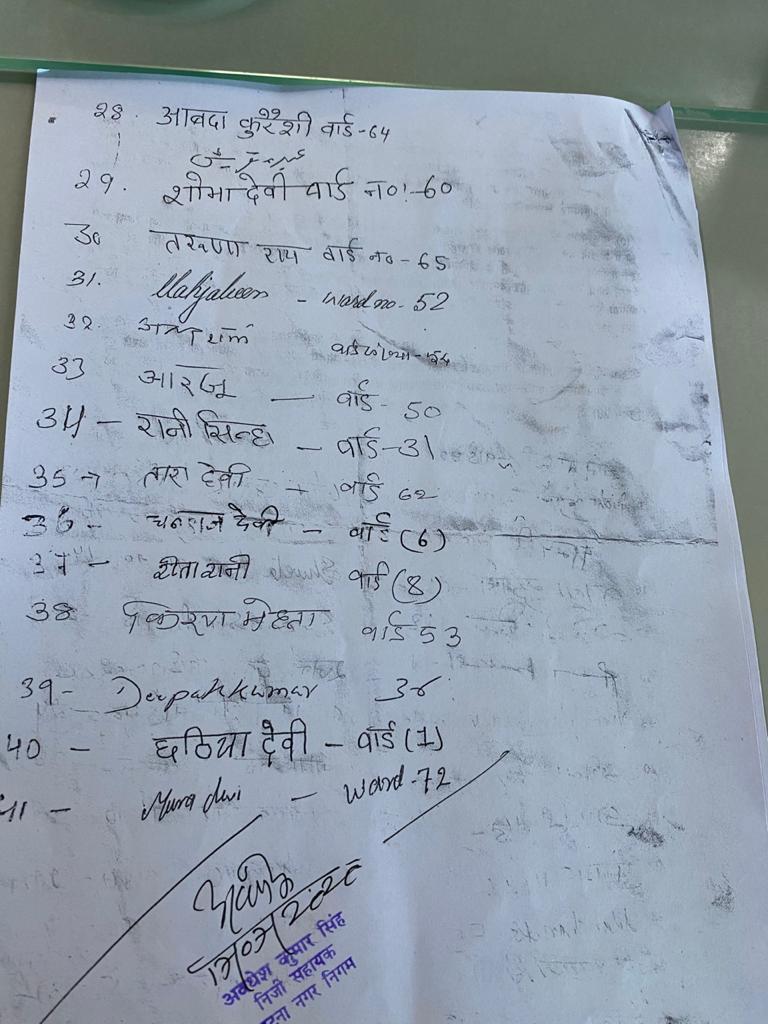 28. आबदा कुरैशी वार्ड-64
29. शोभा देवी वार्ड न०:-60
30 तरूणा राय वार्ड न०-65
31. Mahjabeen - ward no- 52
32.
33 आरजू — वार्ड- 50
34 - रानी सिन्हा - वार्ड-31
35 → तारा देवी - वार्ड 62
36 - देवी - वार्ड (6)
37 - रीता रानी वार्ड (8)
38 किरण मेहता वार्ड 53
39- Deepak kumar 36
40 - छठिया देवी - वार्ड (1)
41 - devi - ward-72
अवधेश कुमार सिंह
निजी सहायक
पटना नगर निगम